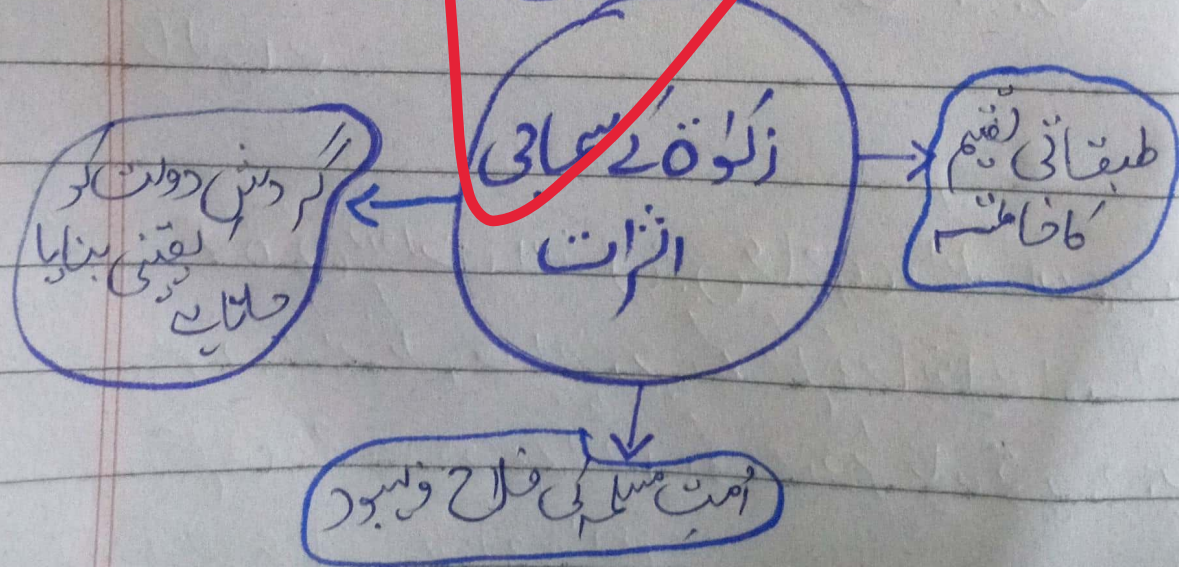 زکوٰۃ کے سماجی
اثرات
طبقاتی تقسیم
کا خاتمہ
گردش دولت کو
یقینی بنایا
جاتا ہے
اُمتِ مسلمہ کی فلاح و بہبود